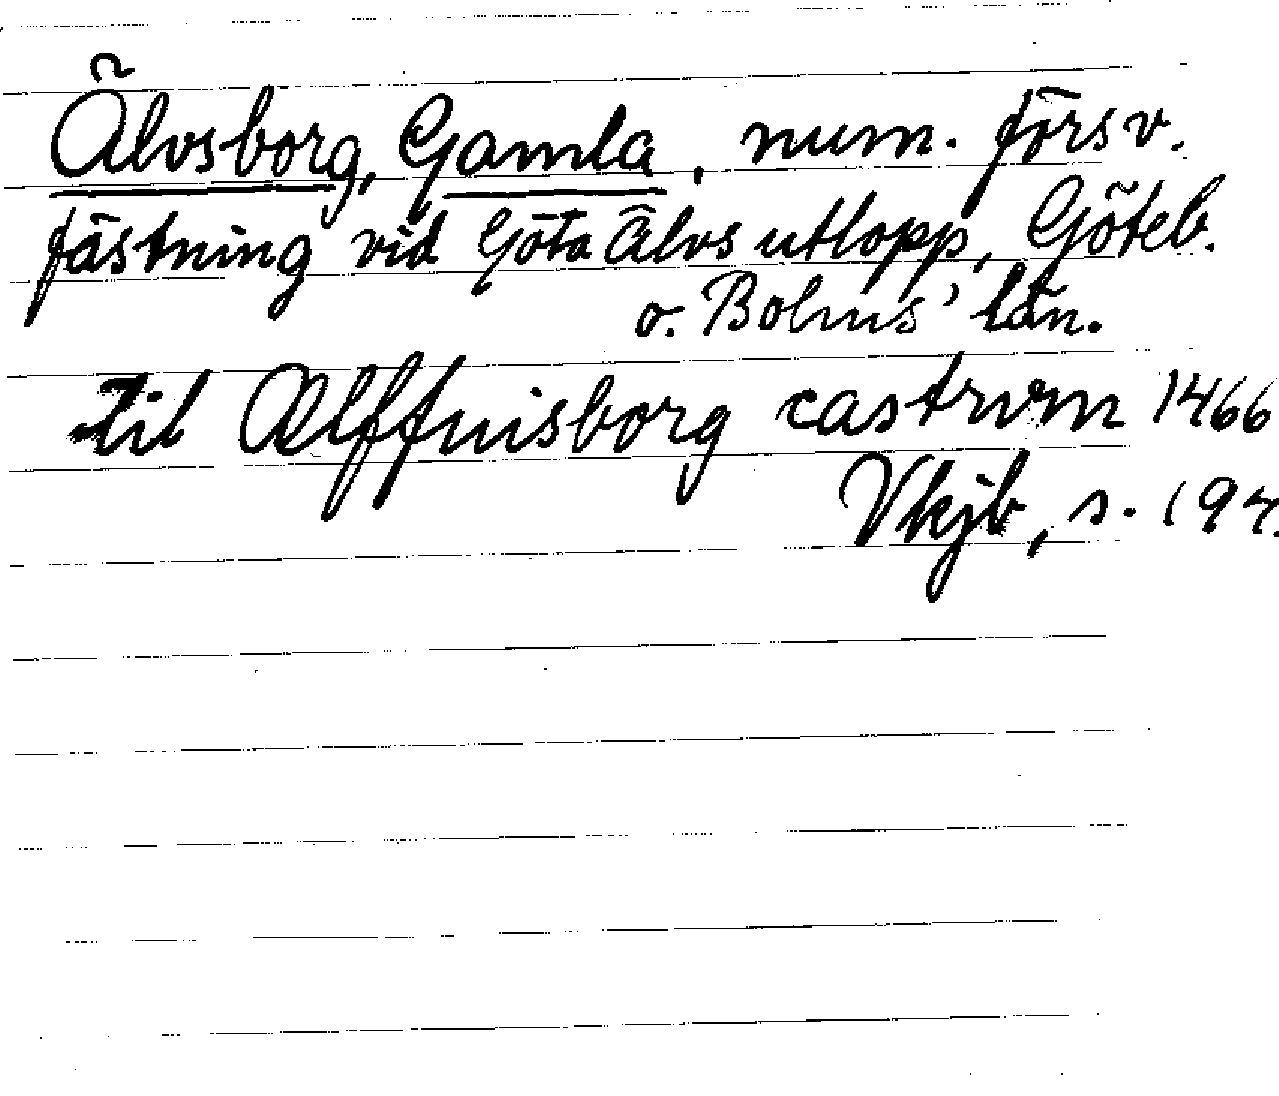 Älvsborg, Gamla, num. försv.
fästning vid Göta älvs utlopp, Göteb.
o. Bohus' län.
til Ælffuisborg castrvm 1466
Vkjb, s. 194.